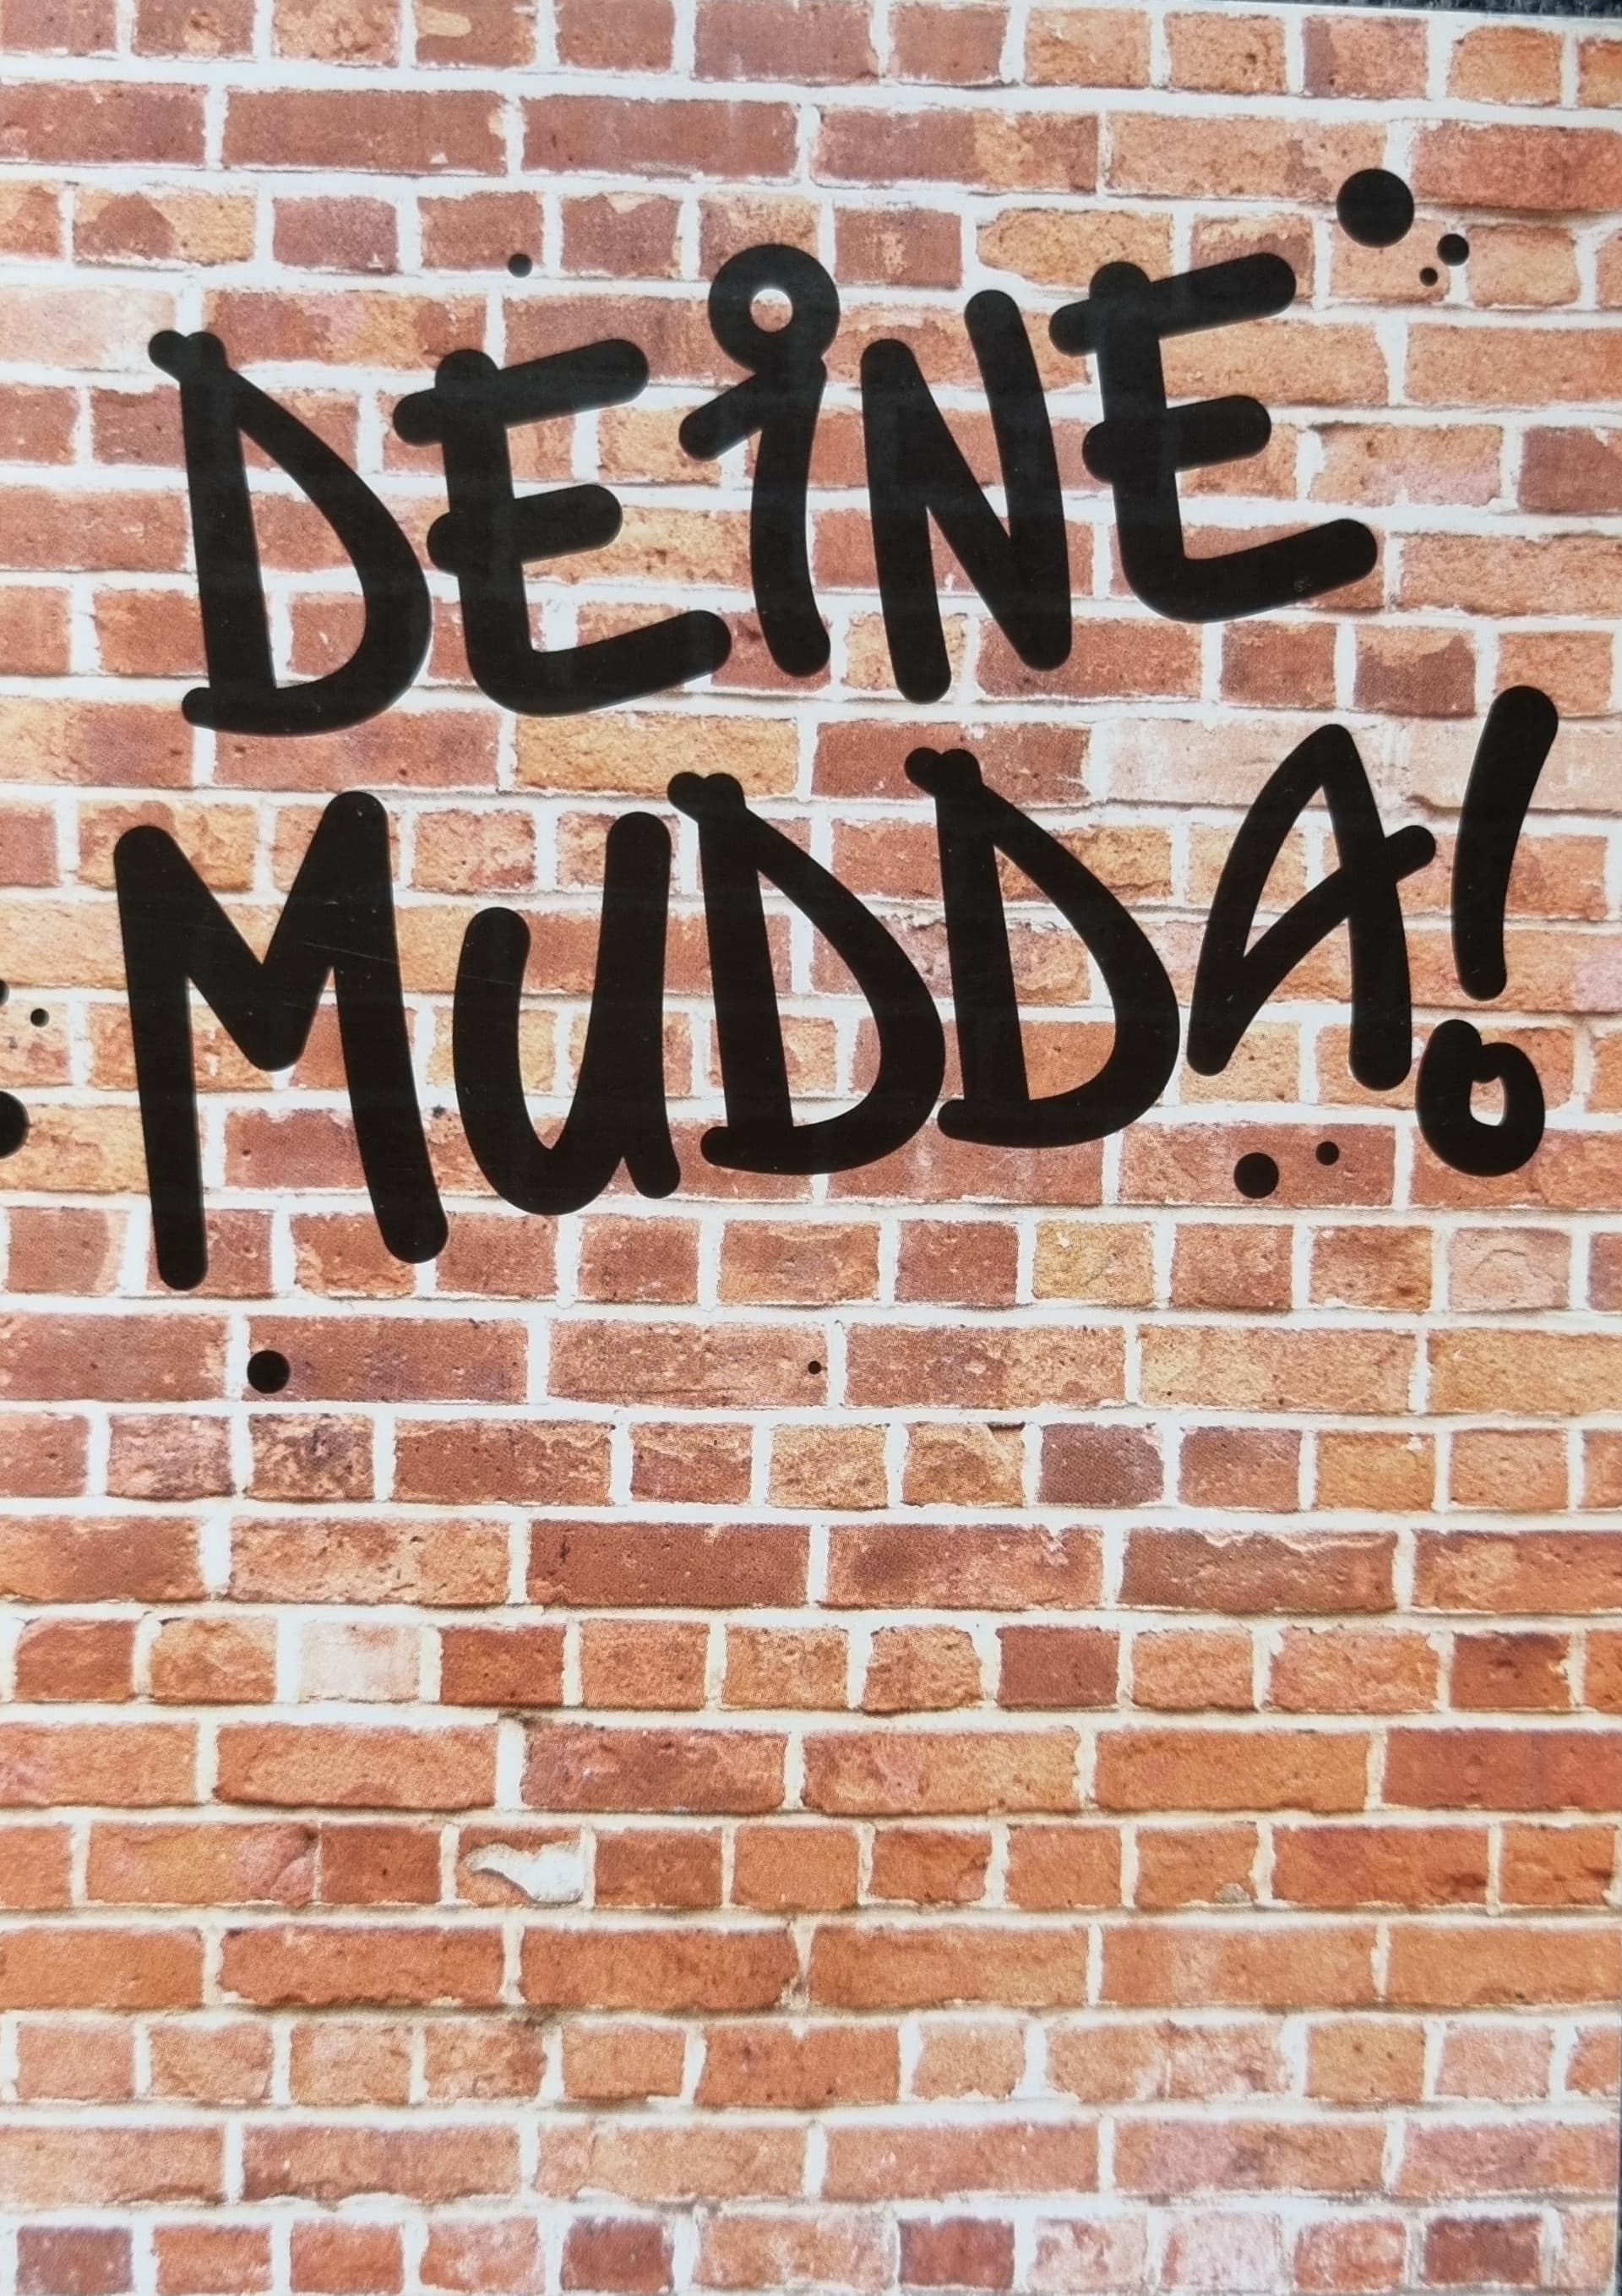 DEiNE
MUDDA!